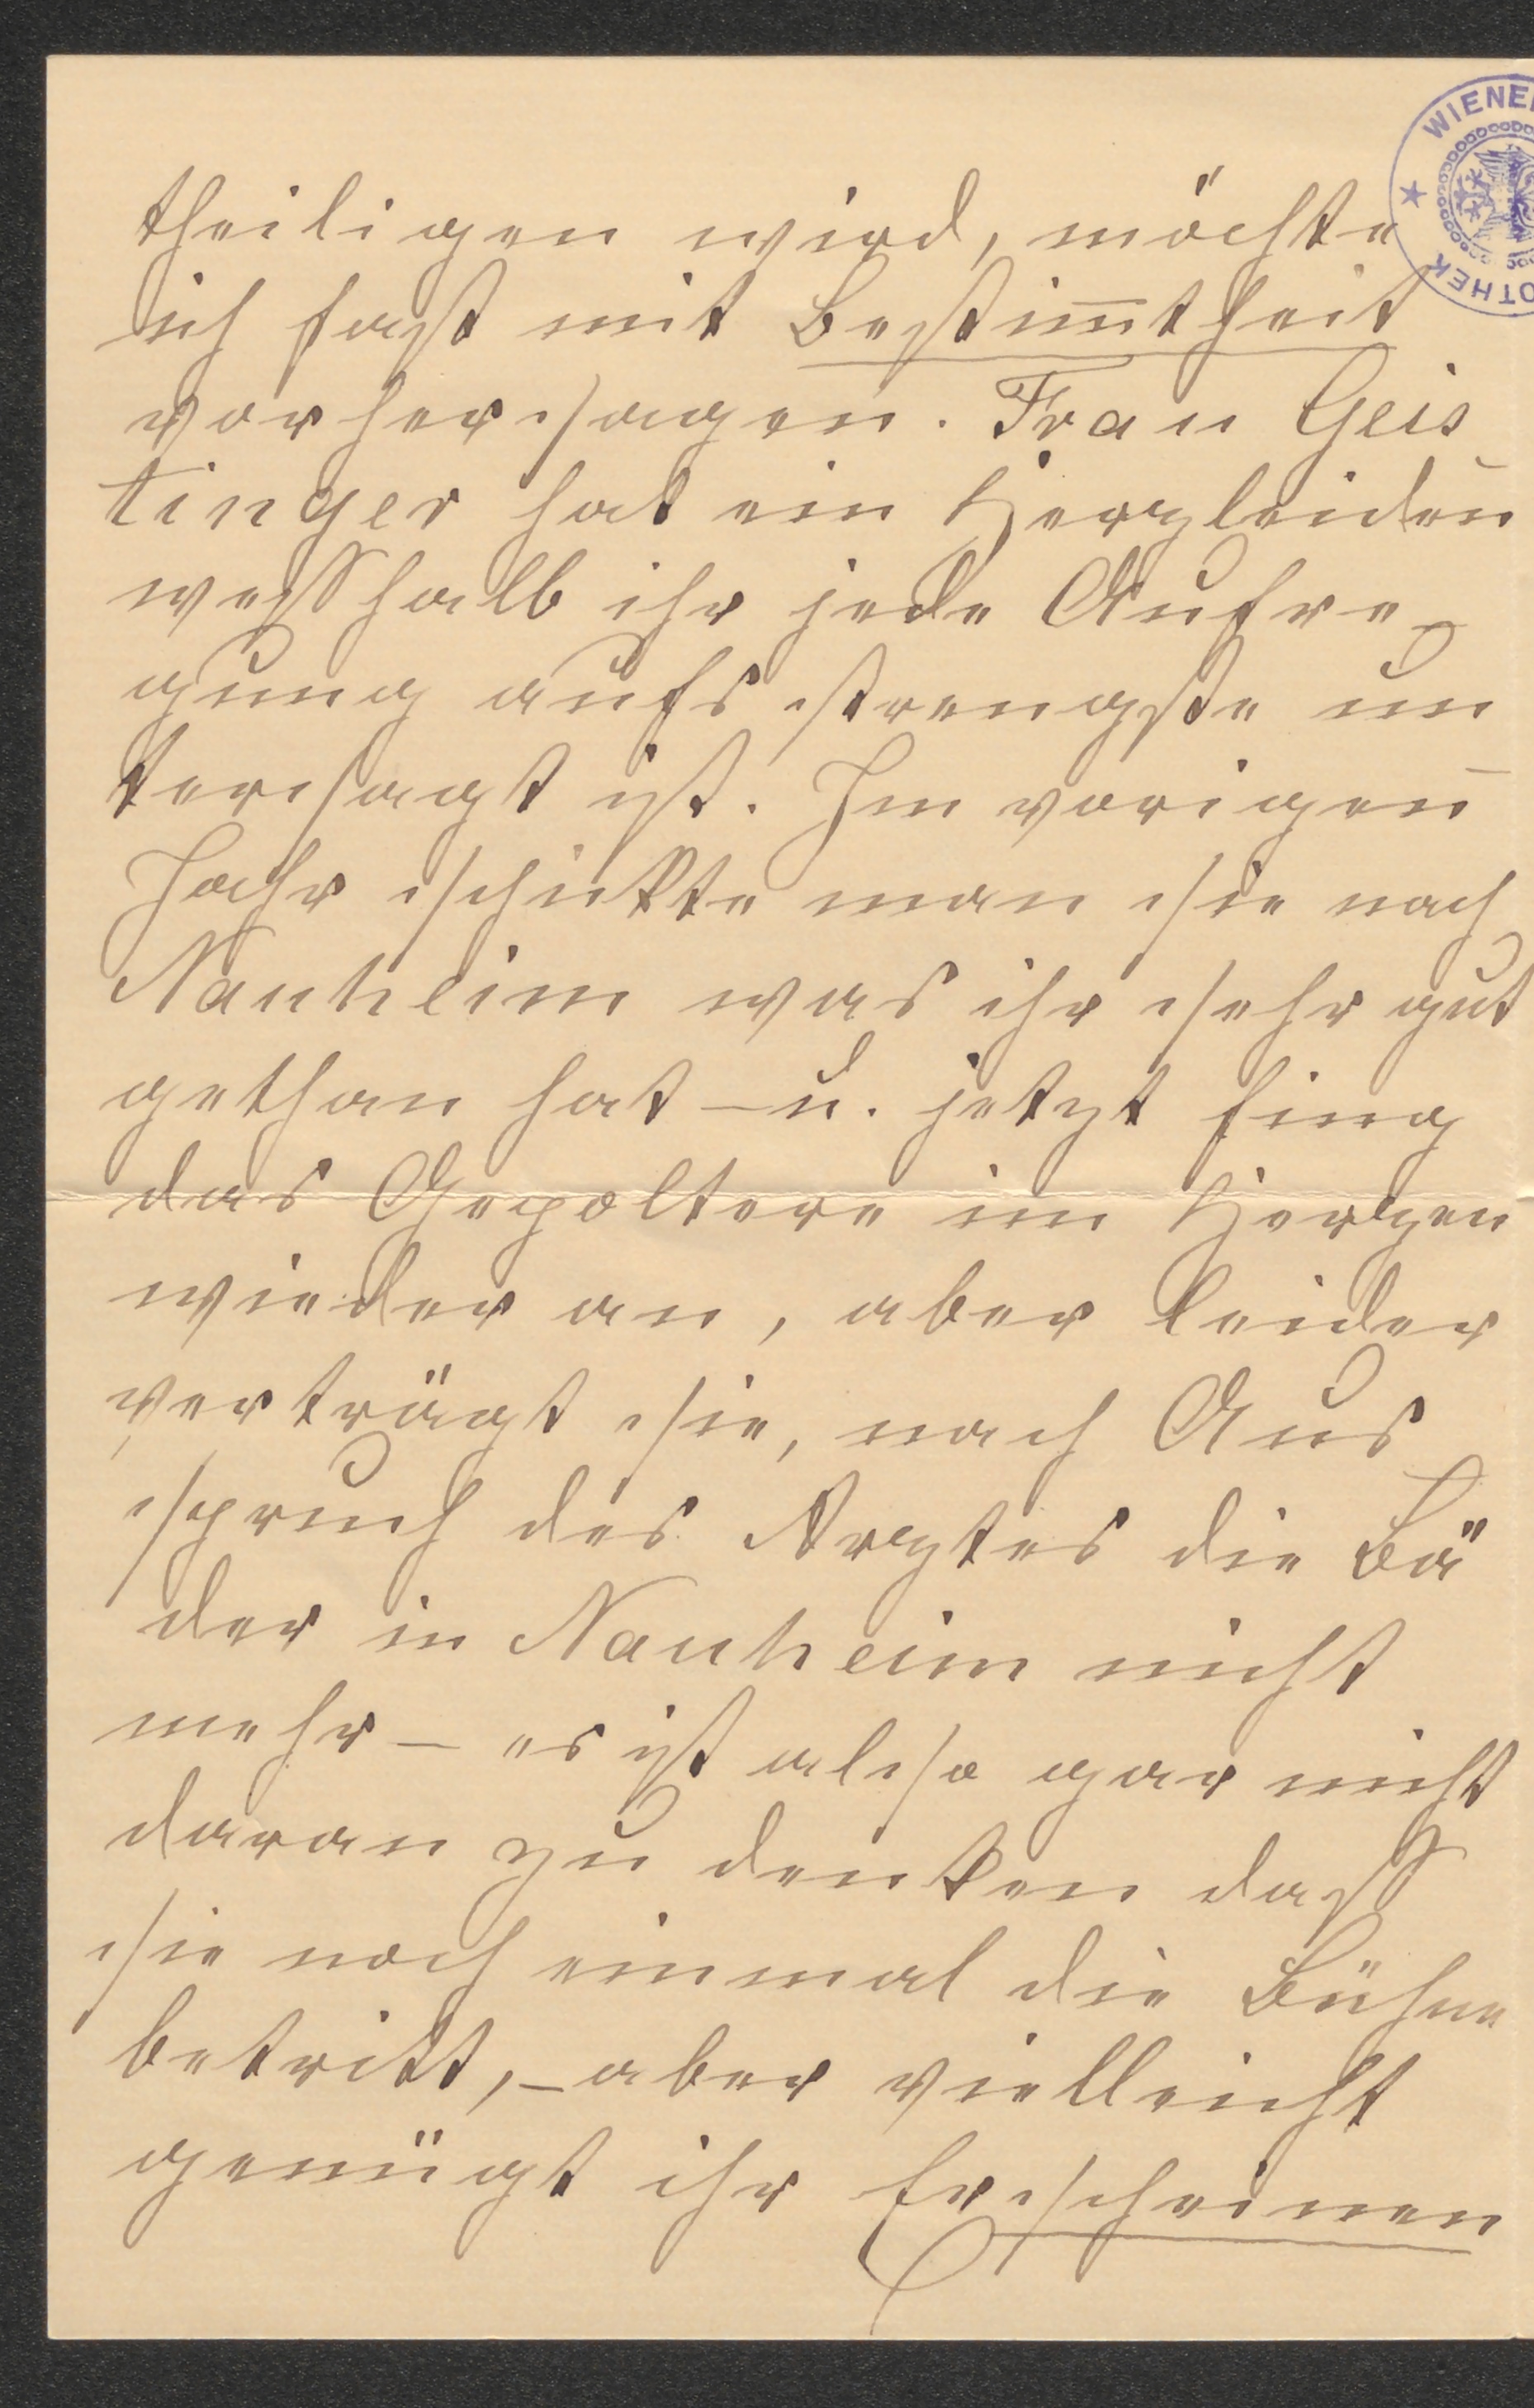 WIENE
OTHEK
theiligen wird, möchte
ich fast mit Bestim̅theit
vorhersagen. Frau Geis
tinger hat ein Herzleiden
weßhalb ihr jede Aufre-
gung aufs strengste un
tersagt ist. Im vorigen
Jahr schickte man sie nach
Nauheim was ihr sehr gut
gethan hat – u. jetzt fing
das Gepoltere im Herzen
wieder an, aber leider
verträgt sie, nach Aus
spruch des Arztes die Bä
der in Nauheim nicht
mehr – es ist also gar nicht
daran zu denken daß
sie noch einmal die Bühne
betritt, – aber vielleicht
genügt ihr Erscheinen